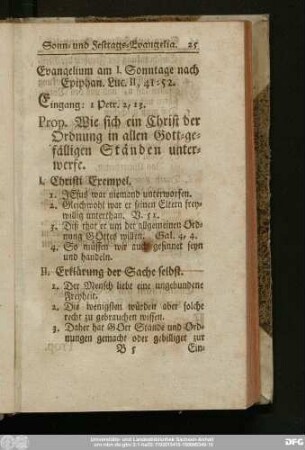 Sonn- und Festtags-Evangelia. 25
Evangelium am I. Sonntage nach
Epiphan. Luc. II, 41-52.
Eingang: 1 Petr. 2, 13.
Prop. Wie sich ein Christ der
Ordnung in allen Gott-ge-
fälligen Ständen unter-
werfe.
I. Christi Exempel.
1. JEsus war niemand unterworfen.
2. Gleichwohl war er seinen Eltern frey-
willig unterthan. V. 51.
3. Diß that er um der allgemeinen Ord-
nung GOttes willen. Gal. 4, 4.
4. So müssen wir auch gesinnet seyn
und handeln.
II. Erklärung der Sache selbst.
1. Der Mensch liebt eine ungebundene
Freyheit.
2. Die wenigsten würden aber solche
recht zu gebrauchen wissen.
3. Daher hat GOtt Stände und Ord-
nungen gemacht oder gebilliget zur
B 5 Ein-
Universitäts- und Landesbibliothek Sachsen-Anhalt
DFG